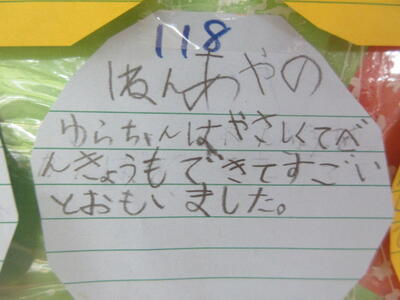 118
ほんあやの
ゆらちゃんは、やさしくてべ
んきょうもできてすごい
とおもいました。